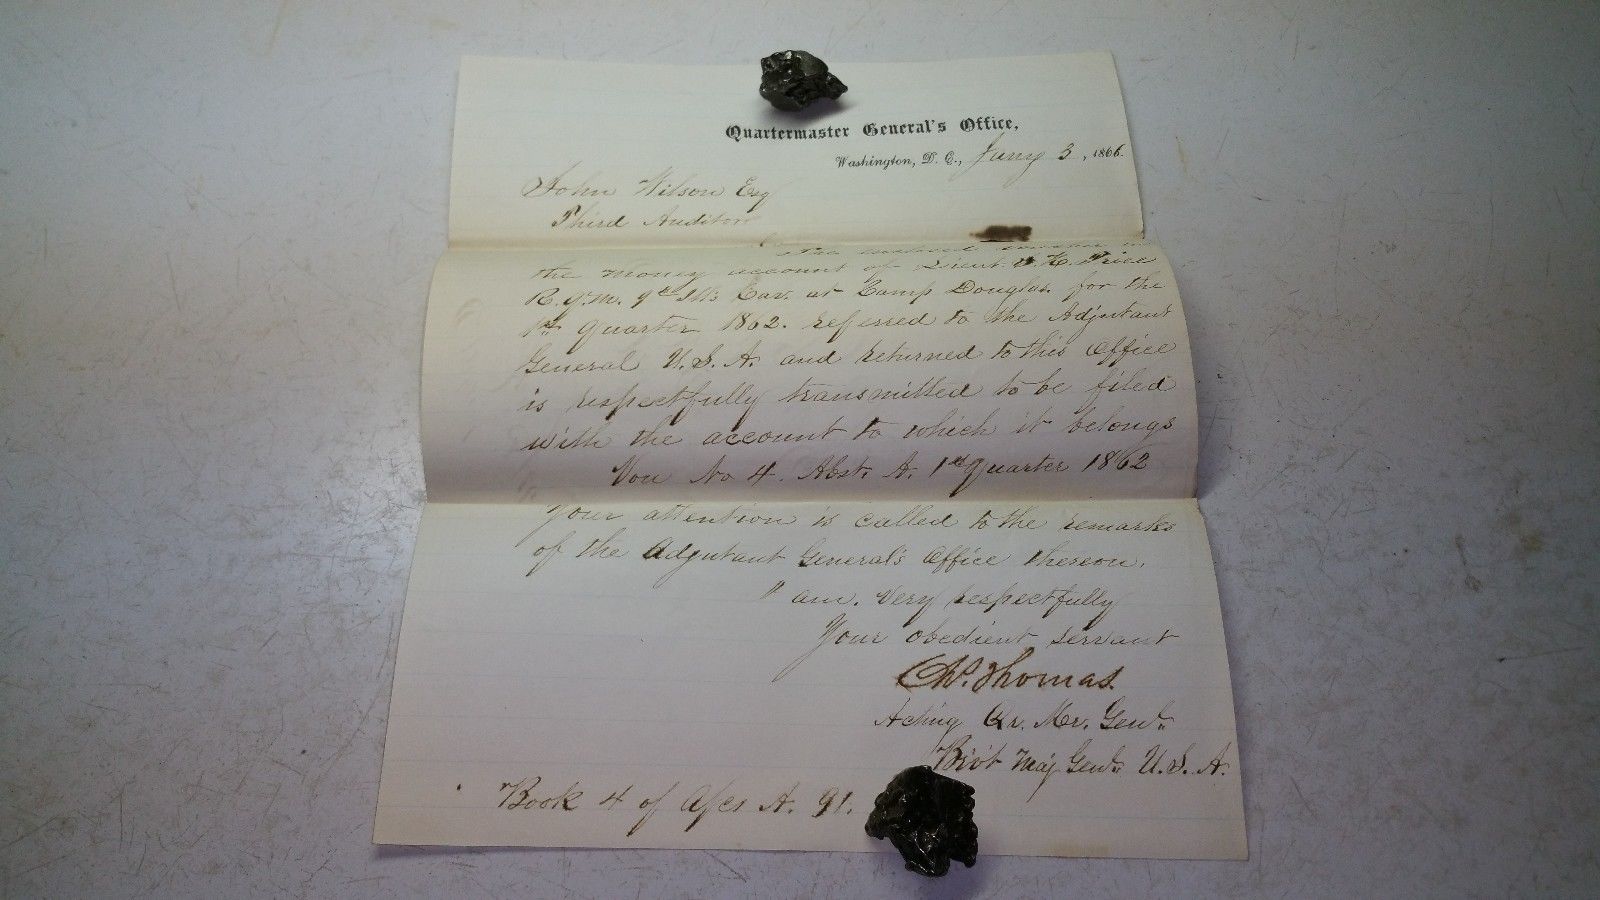 Quartermaster General's Office,
Washington, D. C., Jany 3, 1866.
John Wilson Esq
Third Auditor
The
the money account of Lieut. Price
R. Q. M. 9th Ills Cav. at Camp Douglas for the
1st quarter 1862. referred to the Adjutant
General U. S. A. and returned to this office
is respectfully transmitted to be filed
with the account to which it belongs
Vou No 4. Abst. A. 1st quarter 1862
Your attention is called to the remarks
of the Adjutant General's Office thereon.
I am. Very respectfully
Your obedient servant
Ch. Thomas.
Acting Qr. Mr. Genl.
Bvt Maj Genl. U. S. A.
Book 4 of A. 91.